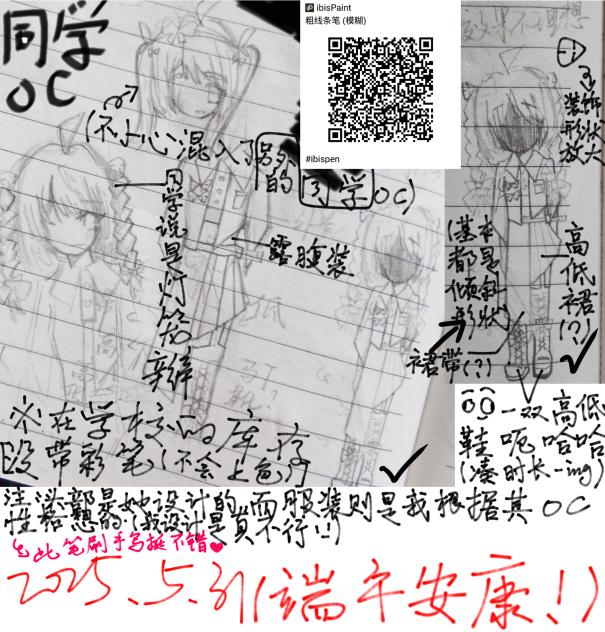 同学
OC
ibisPaint
粗线条笔 (模糊)
#ibispen
(不小心混入了另外的同学OC)
同学说是灯笼辫
露腹装
装饰形状放大
(基本都是倾斜形状)
高低裙(?)
裙带(?)
一双高低鞋 呃哈哈
(凑时长-ing)
※在学校的库存
没带彩笔(不会上色)
注:头部是她设计的,而服装则是我根据其OC
性格想的(我设计是真不行!!)
此笔刷手写挺不错♥
2025.5.31(端午安康!)